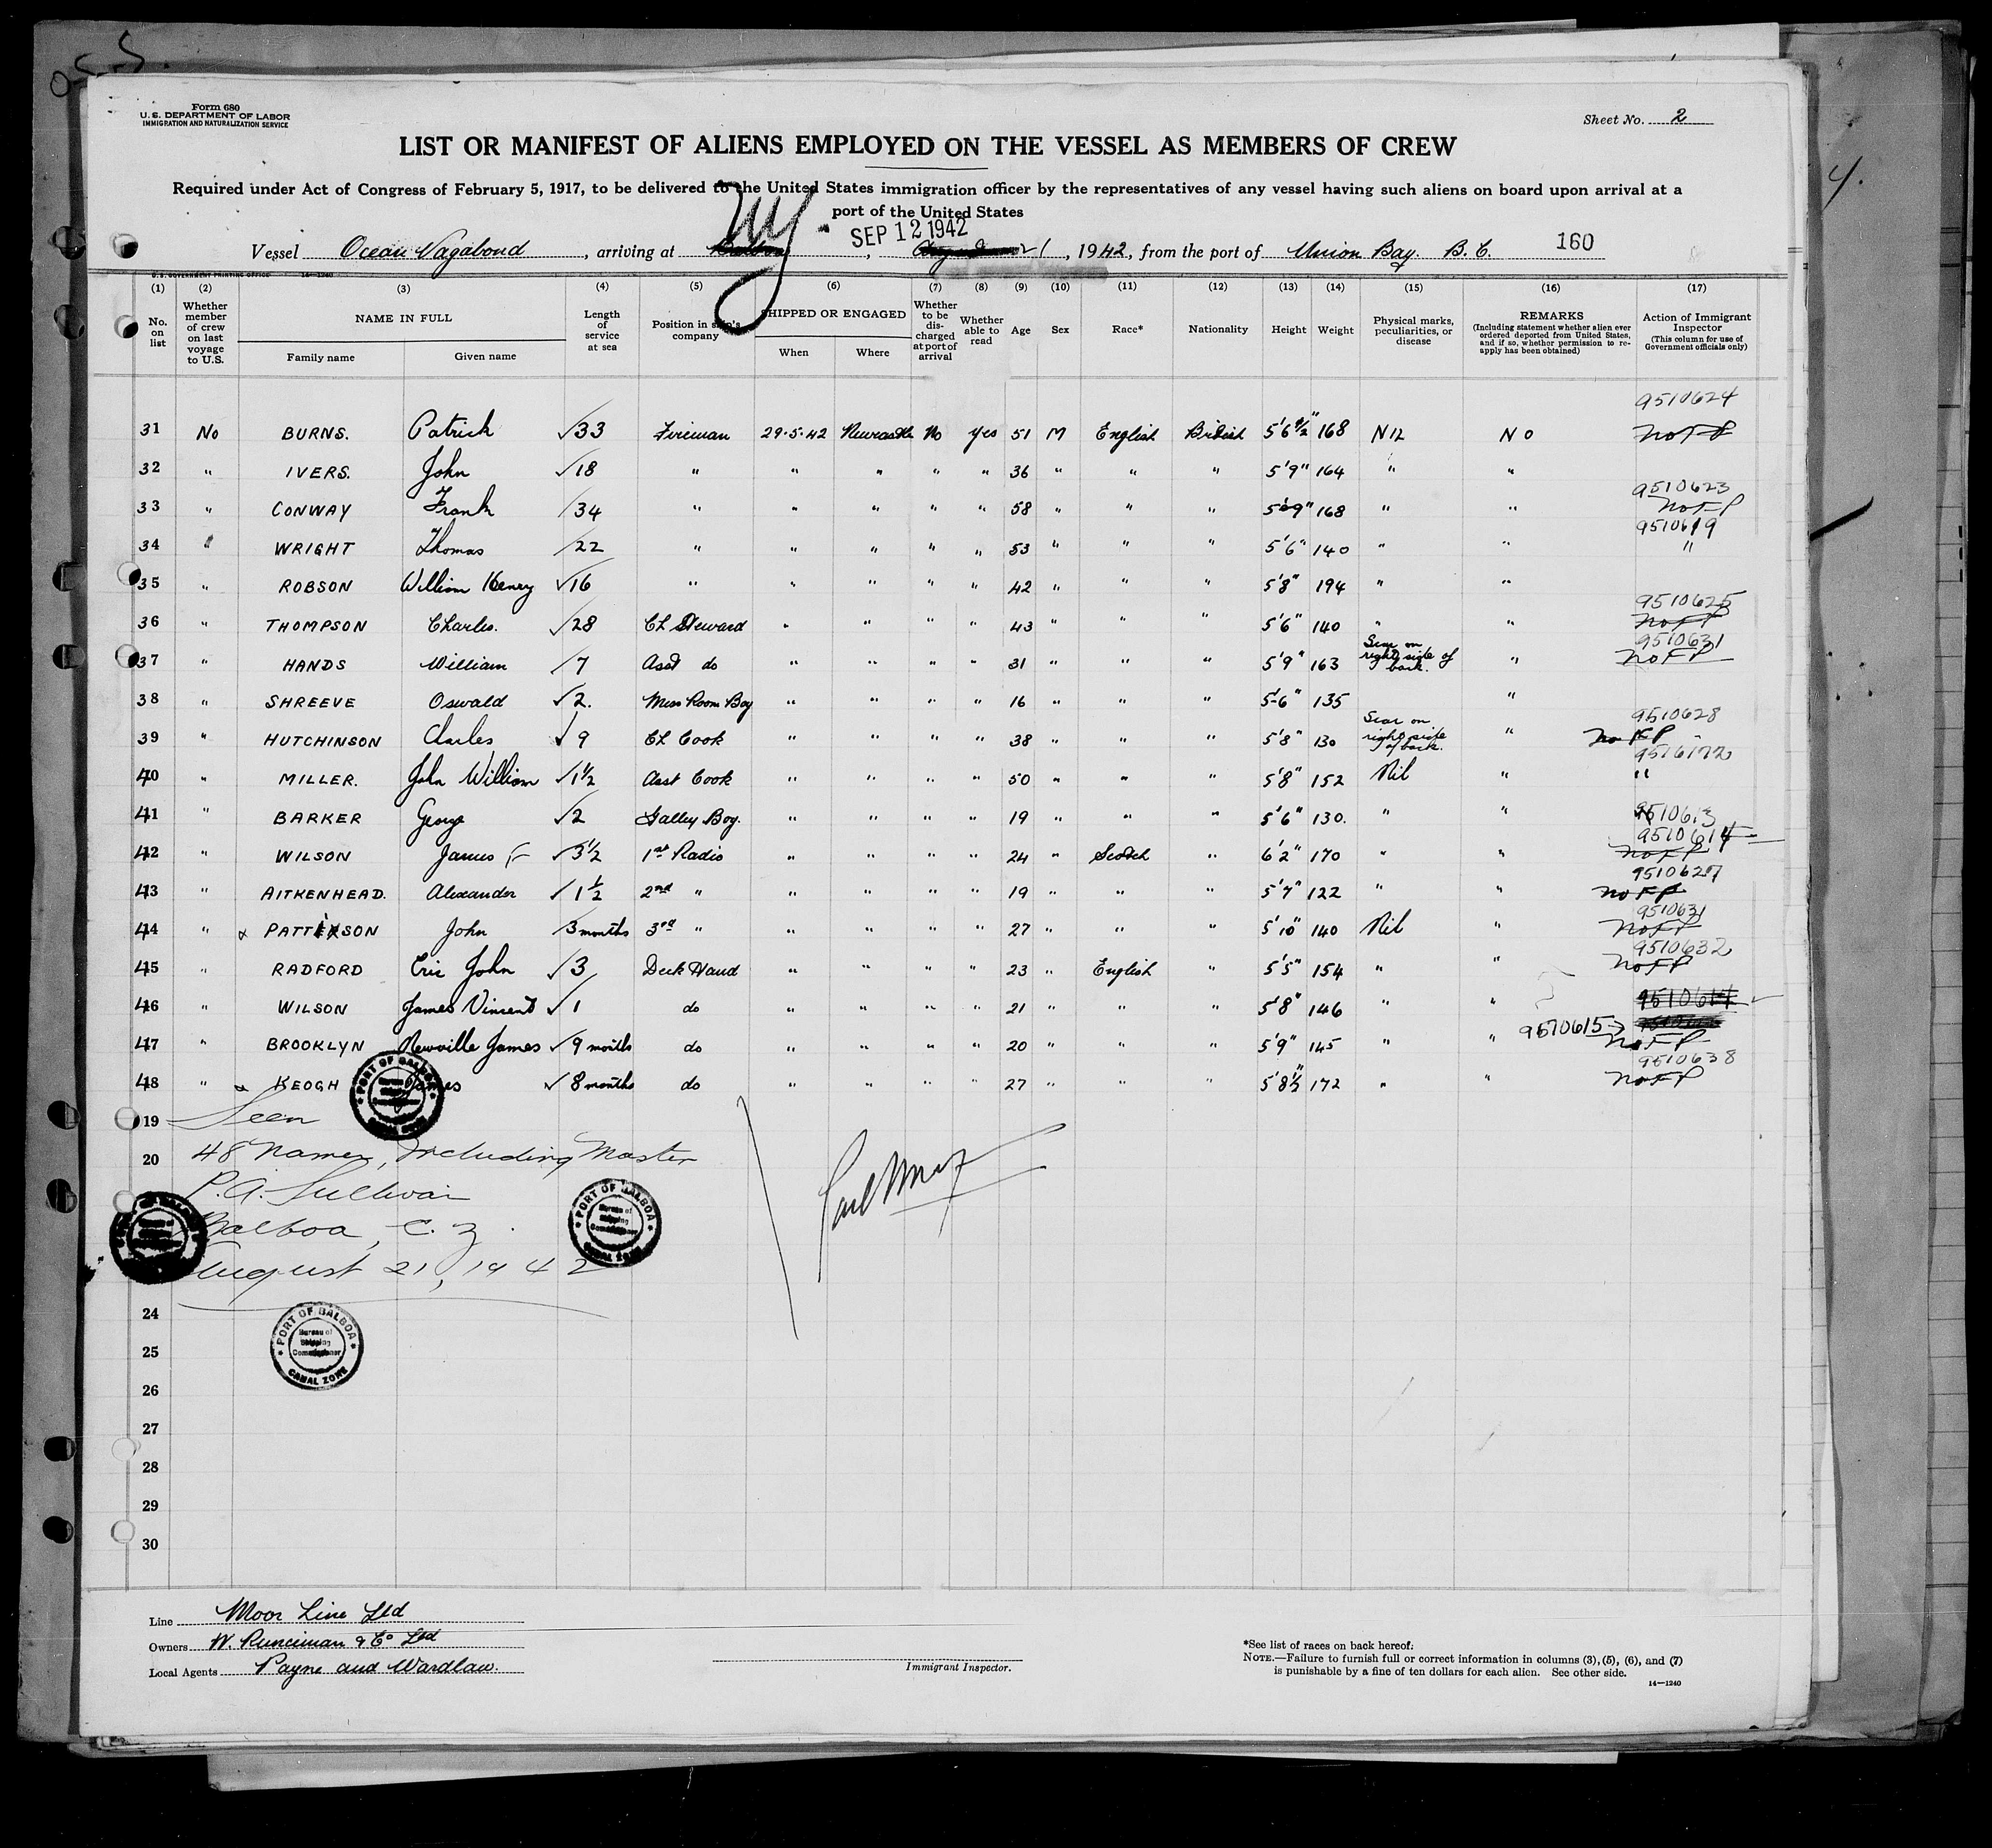 Form 680
U. S. DEPARTMENT OF LABOR
IMMIGRATION AND NATURALIZATION SERVICE
Sheet No. 2
LIST OR MANIFEST OF ALIENS EMPLOYED ON THE VESSEL AS MEMBERS OF CREW
Required under Act of Congress of February 5, 1917, to be delivered to the United States immigration officer by the representatives of any vessel having such aliens on board upon arrival at a
port of the United States
SEP 12 1942
Vessel Ocean Vagabond, arriving at Balboa, 21, 1942, from the port of Union Bay. B. C. 160
U. S. GOVERNMENT PRINTING OFFICE 14—1240
(1) (2) (3) (4) (5) (6) (7) (8) (9) (10) (11) (12) (13) (14) (15) (16) (17)
No. on list
Whether member of crew on last voyage to U.S.
NAME IN FULL
Family name Given name
Length of service at sea
Position in ship's company
SHIPPED OR ENGAGED
When Where
Whether to be discharged at port of arrival
Whether able to read
Age
Sex
Race*
Nationality
Height
Weight
Physical marks, peculiarities, or disease
REMARKS
(Including statement whether alien ever ordered deported from United States, and if so, whether permission to re-apply has been obtained)
Action of Immigrant Inspector
(This column for use of Government officials only)
9510624
31 No BURNS. Patrick √33 Fireman 29·5·42 Newcastle No Yes 51 M English British 5'6½" 168 Nil NO No FP
32 " IVERS. John √18 " " " " " 36 " " " 5'9" 164 " "
9510623
33 " CONWAY Frank /34 " " " " " 58 " " " 5'9" 168 " " No FP
9510619
34 " WRIGHT Thomas /22 " " " " " 53 " " " 5'6" 140 " " "
35 " ROBSON William Henry √16 " " " " " 42 " " " 5'8" 194 " "
9510625
36 " THOMPSON Charles. √28 Ch Steward " " " " 43 " " " 5'6" 140 " " No FP
9510631
37 " HANDS William /7 Asst do " " " " 31 " " " 5'9" 163 Scar on right side of back. " No FP
38 " SHREEVE Oswald √2. Mess Room Boy " " " " 16 " " " 5'6" 135 "
9510628
39 " HUTCHINSON Charles √9 Ch Cook " " " " 38 " " " 5'8" 130 Scar on right side of back. " No FP
40 " MILLER. John William √1½ Asst Cook " " " " 50 " " " 5'8" 152 Nil " "
41 " BARKER George √2 Galley Boy. " " " " 19 " " " 5'6" 130. " " 9510613
9510614
42 " WILSON James √3½ 1st Radio " " " " 24 " Scotch " 6'2" 170 " " No FP
9510627
43 " AITKENHEAD. Alexander /1½ 2nd " " " " " 19 " " " 5'7" 122 " " No FP
9510631
44 " PATTISON John /3 months 3rd " " " " " 27 " " " 5'10" 140 Nil " No FP
9510632
45 " RADFORD Eric John √3 Deck Hand " " " " 23 " English " 5'5" 154 " " No FP
46 " WILSON James Vincent √1 do " " " " 21 " " " 5'8" 146 " " 9510614
9510615
47 " BROOKLYN Newville James √9 months do " " " " 20 " " " 5'9" 145 " " No FP
9510638
48 " KEOGH James √8 months do " " " " 27 " " " 5'8½" 172 " " No FP
19 Seen
20 48 names, including Master
P. A. Sullivan
Balboa, C. Z.
August 21, 1942
PORT OF BALBOA
Bureau of Shipping Commissioner
CANAL ZONE
PORT OF BALBOA
Bureau of Shipping Commissioner
CANAL ZONE
PORT OF BALBOA
Bureau of Shipping Commissioner
CANAL ZONE
24
25
26
27
28
29
30
Line Moor Line Ltd
Owners W. Runciman & Co Ltd
Local Agents Payne and Wardlaw.
Immigrant Inspector.
*See list of races on back hereof.
NOTE.—Failure to furnish full or correct information in columns (3), (5), (6), and (7)
is punishable by a fine of ten dollars for each alien. See other side.
14—1240